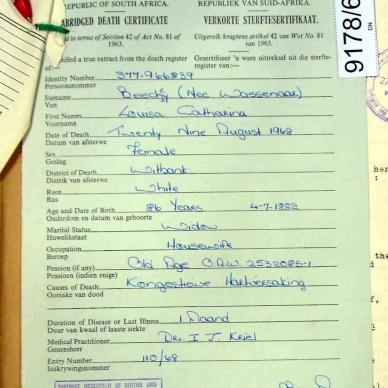 REPUBLIC OF SOUTH AFRICA. REPUBLIEK VAN SUID-AFRIKA.
ABRIDGED DEATH CERTIFICATE VERKORTE STERFTESERTIFIKAAT.
in terms of Section 42 of Act No. 81 of 1963. Uitgereik kragtens artikel 42 van Wet No. 81 van 1963.
a true extract from the death register Gesertifiseer 'n ware uittreksel uit die sterfte-register
Identity Number 377-966839
Persoonsnommer
Surname Beechey (Nee Wassenaar)
Van
First Names Louisa Catharina
Voorname
Date of Death Twenty Nine August 1968
Datum van afsterwe
Sex Female
Geslag
District of Death Witbank
Distrik van afsterwe
Race White
Ras
Age and Date of Birth 86 Years 4-7-1882
Ouderdom en datum van geboorte
Marital Status Widow
Huwelikstaat
Occupation Housewife
Beroep
Pension (if any) Old Age O.A.W. 2532085-1
Pensioen (indien enige)
Causes of Death Kongestiewe Hartversaking
Oorsake van dood
Duration of Disease or Last Illness 1 Maand
Duur van kwaal of laaste siekte
Medical Practitioner Dr. I J Kriel
Geneesheer
Entry Number 110/68
Inskrywingsnommer
9178/6